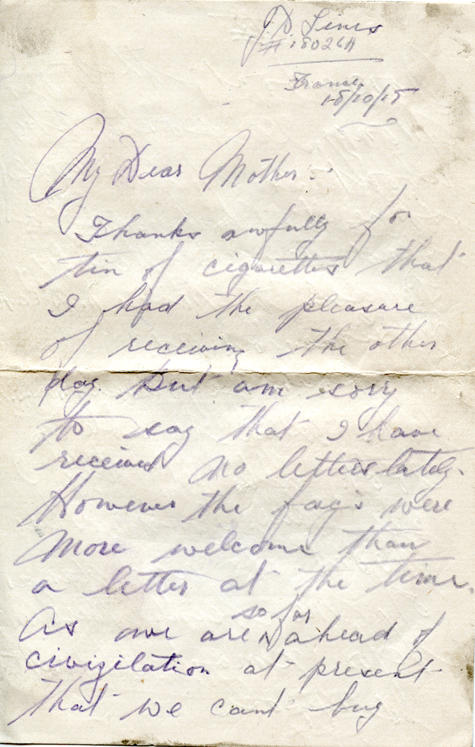 J.D. Sims
# 18026A
France
18/10/15
My Dear Mother:-
Thanks awfully for
tin of cigarettes that
I had the pleasure
of receiving the other
day but am sorry
to say that I have
received no letters lately.
However the fags were
more welcome than
a letter at the time
As we are so far ahead of
civizilation at present
that we cant buy